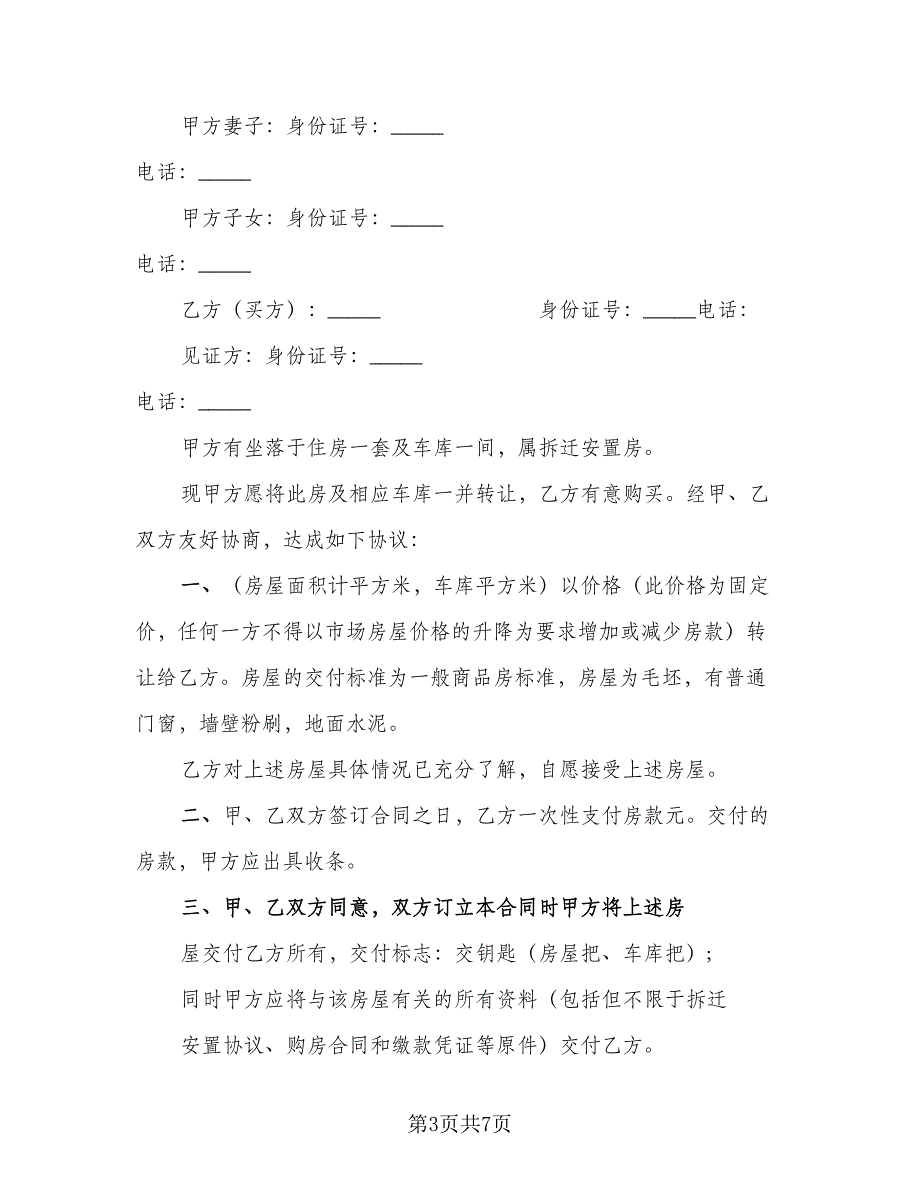 甲方妻子：身份证号：_____
电话：_____
甲方子女：身份证号：_____
电话：_____
乙方（买方）：_____ 身份证号：_____电话：
见证方：身份证号：_____
电话：_____
甲方有坐落于住房一套及车库一间，属拆迁安置房。
现甲方愿将此房及相应车库一并转让，乙方有意购买。经甲、乙
双方友好协商，达成如下协议：
一、（房屋面积计平方米，车库平方米）以价格（此价格为固定
价，任何一方不得以市场房屋价格的升降为要求增加或减少房款）转
让给乙方。房屋的交付标准为一般商品房标准，房屋为毛坯，有普通
门窗，墙壁粉刷，地面水泥。
乙方对上述房屋具体情况已充分了解，自愿接受上述房屋。
二、甲、乙双方签订合同之日，乙方一次性支付房款元。交付的
房款，甲方应出具收条。
三、甲、乙双方同意，双方订立本合同时甲方将上述房
屋交付乙方所有，交付标志：交钥匙（房屋把、车库把）；
同时甲方应将与该房屋有关的所有资料（包括但不限于拆迁
安置协议、购房合同和缴款凭证等原件）交付乙方。
第3页共7页